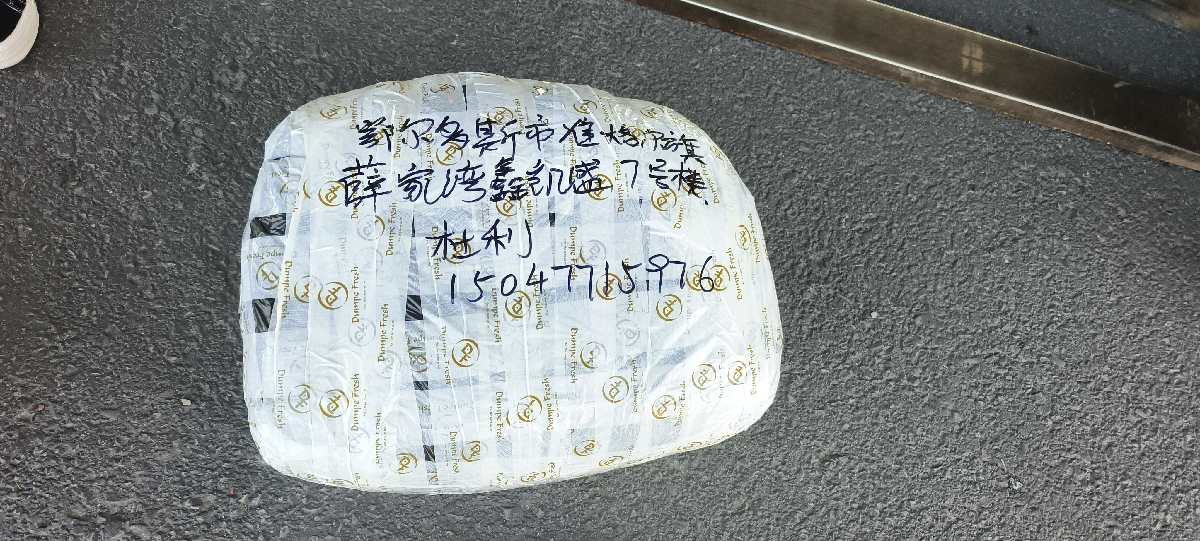 鄂尔多斯市准格尔旗
薛家湾鑫凯盛7号楼
杜利
15047715976
Dumpe Fresh